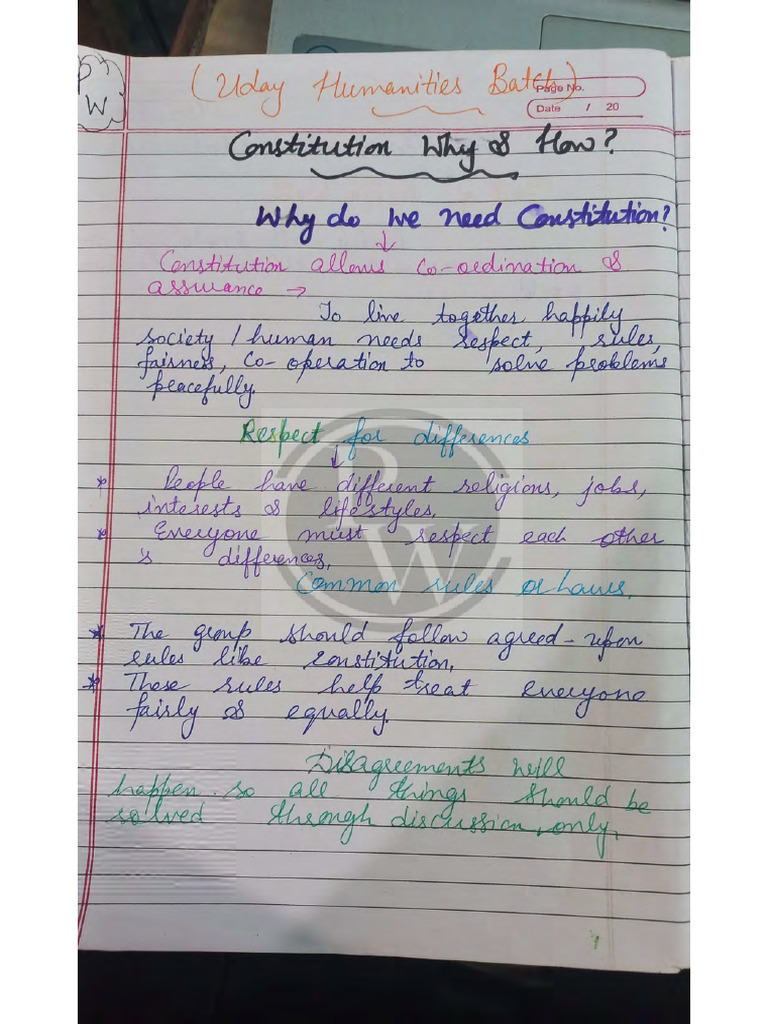 P
W
(Uday Humanities Batch)
Page No.
Date / 20
Constitution Why & How?
Why do we need Constitution?
Constitution allows Co-ordination &
assurance →
To live together happily
society / human needs respect, rules,
fairness, Co-operation to solve problems
peacefully.
Respect for differences
* People have different religions, jobs,
interests & lifestyles.
* Everyone must respect each other
's differences.
Common rules or laws.
* The group should follow agreed-upon
rules like constitution.
* These rules help treat everyone
fairly & equally.
Disagreements will
happen so all things should be
solved through discussion only.
PW
1